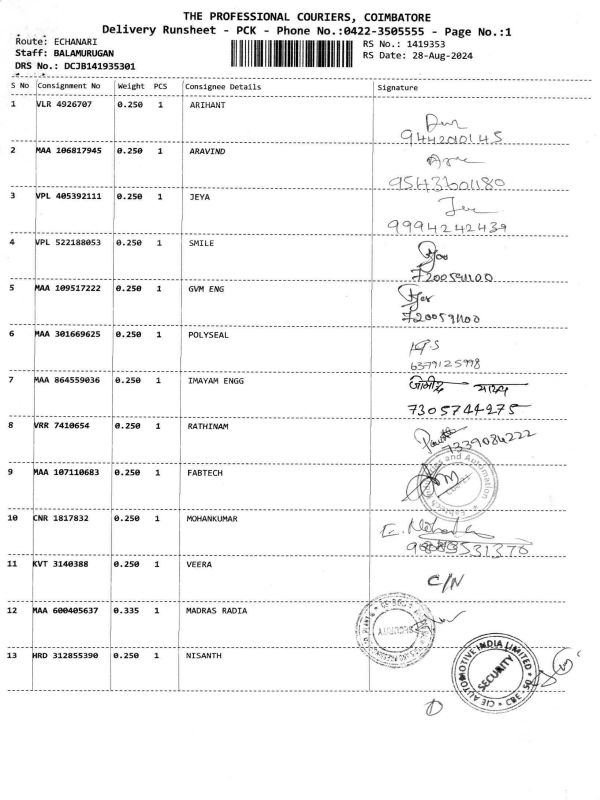 THE PROFESSIONAL COURIERS, COIMBATORE
Delivery Runsheet - PCK - Phone No.:0422-3505555 - Page No.:1
Route: ECHANARI
RS No.: 1419353
Staff: BALAMURUGAN
RS Date: 28-Aug-2024
DRS No.: DCJB141935301
S No Consignment No Weight PCS Consignee Details Signature
1 VLR 4926707 0.250 1 ARIHANT
2 MAA 106817945 0.250 1 ARAVIND
9543601180
3 VPL 405392111 0.250 1 JEYA
9994242439
4 VPL 522188053 0.250 1 SMILE
7200591100
5 MAA 109517222 0.250 1 GVM ENG
7200591100
6 MAA 301669625 0.250 1 POLYSEAL
6379125998
7 MAA 864559036 0.250 1 IMAYAM ENGG
7305744275
8 VRR 7410654 0.250 1 RATHINAM
7339084222
9 MAA 107110683 0.250 1 FABTECH
10 CNR 1817832 0.250 1 MOHANKUMAR
11 KVT 3140388 0.250 1 VEERA
C/N
12 MAA 600405637 0.335 1 MADRAS RADIA
SECURITY
13 HRD 312855390 0.250 1 NISANTH
CIE AUTOMOTIVE INDIA LIMITED
SECURITY
CBE - 50